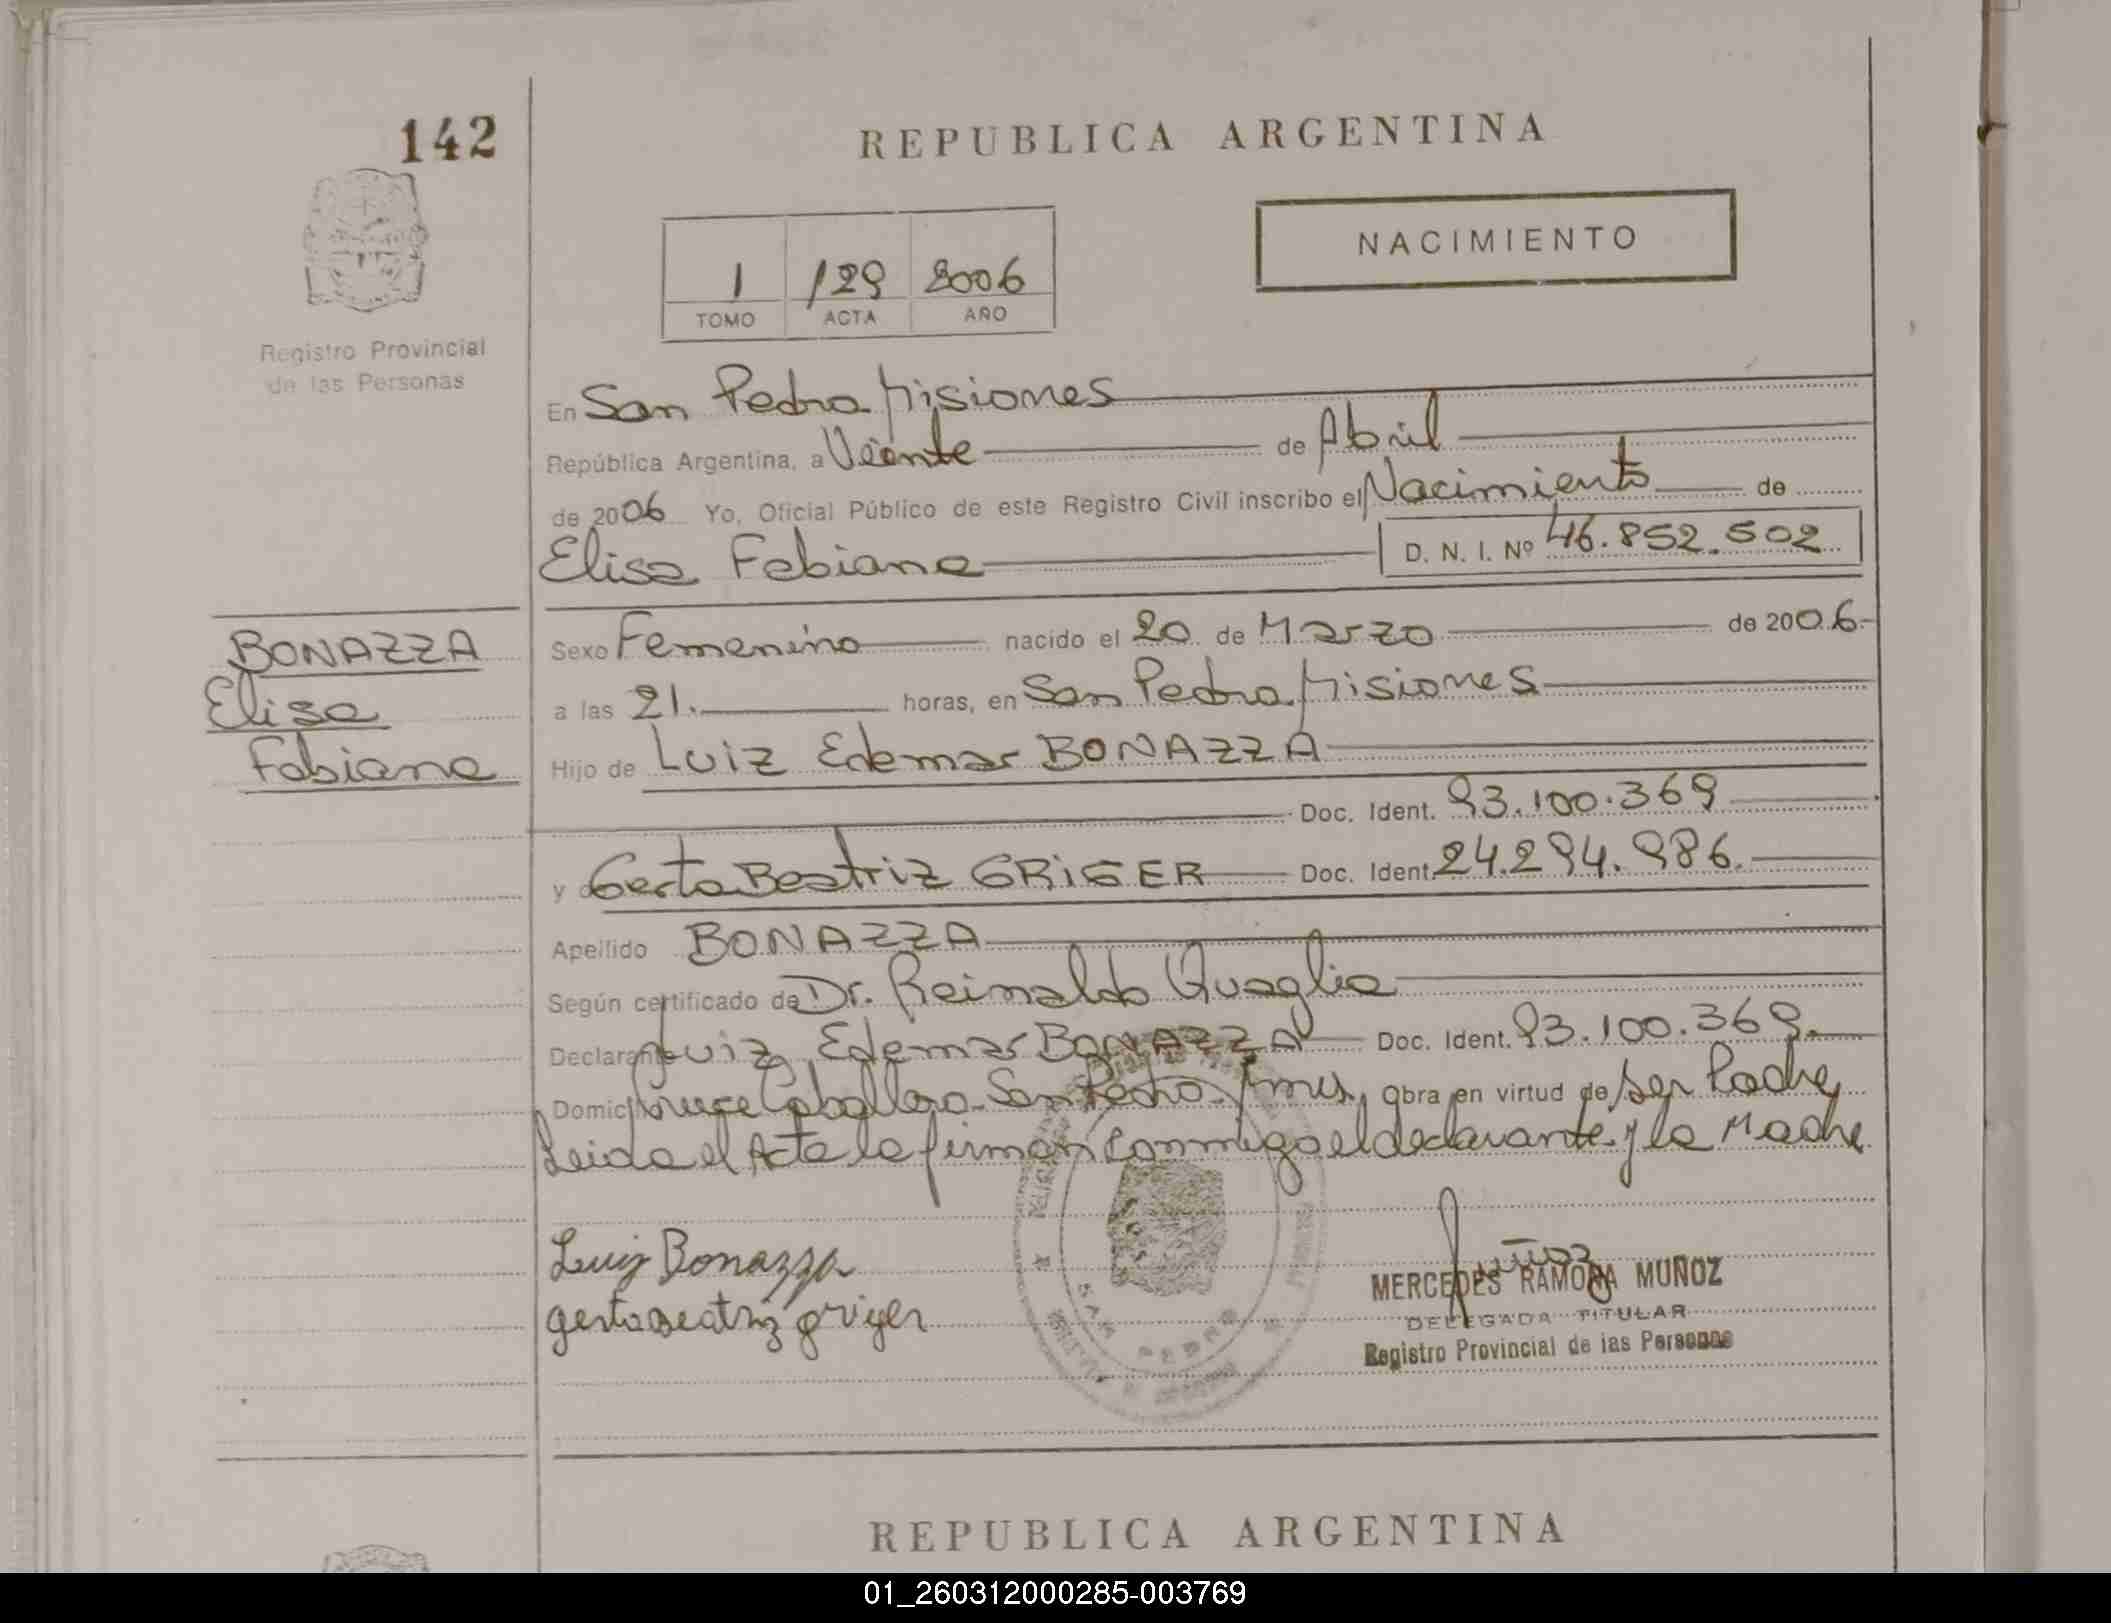 142
REPUBLICA ARGENTINA
NACIMIENTO
1 129 2006
TOMO ACTA AÑO
Registro Provincial
de las Personas
En San Pedro Misiones
República Argentina, a Veinte de Abril
de 2006 Yo, Oficial Público de este Registro Civil inscribo el Nacimiento de
Elisa Fabiana D. N. I. Nº 46.852.502
BONAZZA
Elisa
Fabiana
Sexo Femenino nacido el 20 de Marzo de 2006.-
a las 21. horas, en San Pedro Misiones
Hijo de Luiz Edemar BONAZZA
Doc. Ident. 93.100.369
y de Gerta Beatriz GRIGER Doc. Ident. 24.294.986.
Apellido BONAZZA
Según certificado de Dr. Reinaldo Quaglia
Declarante Luiz Edemar BONAZZA Doc. Ident. 93.100.369.
Domic Caballero - San Pedro - Mnes, obra en virtud de Ser Padre
Leida el Acta la firman conmigo el declarante y la Madre
Luiz Bonazza
gerta Beatriz griger
SAN PEDRO
Muñoz
MERCEDES RAMONA MUÑOZ
DELEGADA TITULAR
Registro Provincial de las Personas
REPUBLICA ARGENTINA
01_260312000285-003769